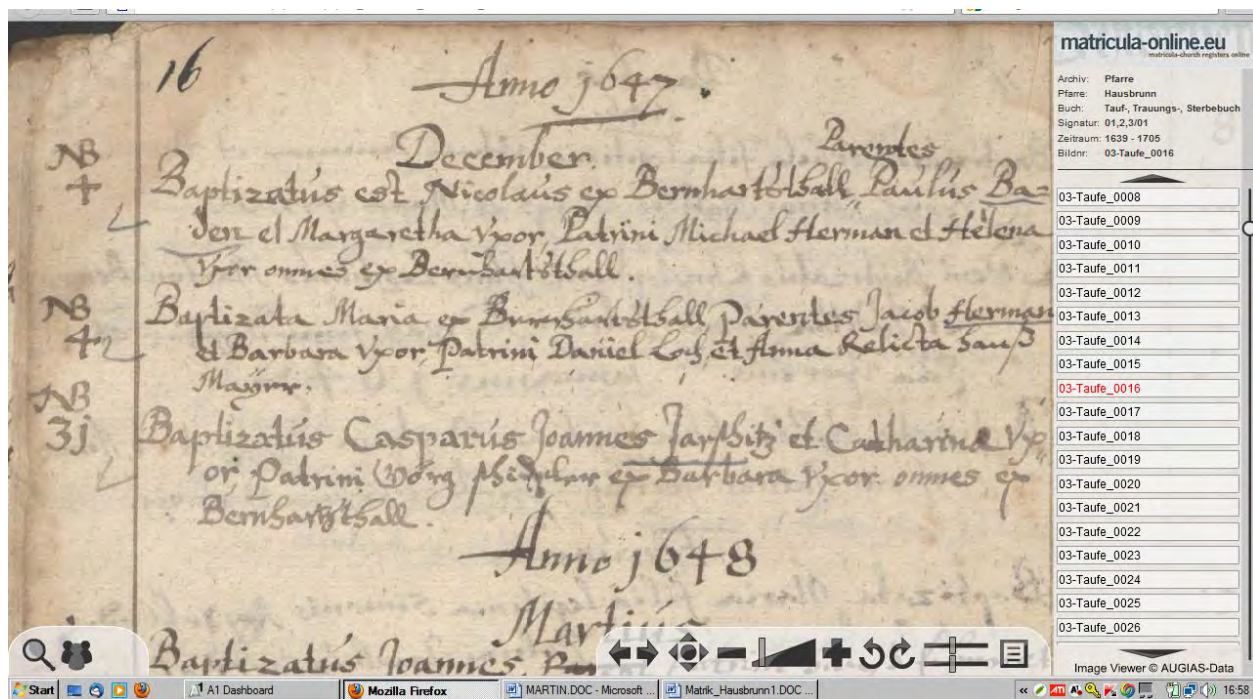 16
Anno 1647.
December.
Parentes
NB
4
Baptizatus est Nicolaus ex Bernhartsthall Paulus Ba=
den et Margaretha Vxor, Patrini Michael Herman et Helena
Vxor omnes ex Bernhartsthall.
NB
4
Baptizata Maria ex Bernhartsthall Parentes Jacob Herman
et Barbara Vxor, Patrini Daniel Loch, et Anna Relicta Hauß
Mayrr.
NB
31
Baptizatus Casparus Joannes et Catharina Vx=
or, Patrini Görg ex Barbara Vxor omnes ex
Bernhartsthall.
Anno 1648
Martius
Baptizatus Joannes
matricula-online.eu
matricula-church registers online
Archiv: Pfarre
Pfarre: Hausbrunn
Buch: Tauf-, Trauungs-, Sterbebuch
Signatur: 01,2,3/01
Zeitraum: 1639 - 1705
Bildnr: 03-Taufe_0016
03-Taufe_0008
03-Taufe_0009
03-Taufe_0010
03-Taufe_0011
03-Taufe_0012
03-Taufe_0013
03-Taufe_0014
03-Taufe_0015
03-Taufe_0016
03-Taufe_0017
03-Taufe_0018
03-Taufe_0019
03-Taufe_0020
03-Taufe_0021
03-Taufe_0022
03-Taufe_0023
03-Taufe_0024
03-Taufe_0025
03-Taufe_0026
Image Viewer © AUGIAS-Data
Start
A1 Dashboard
Mozilla Firefox
MARTIN.DOC - Microsoft ...
Matrik_Hausbrunn1.DOC ...
16:59